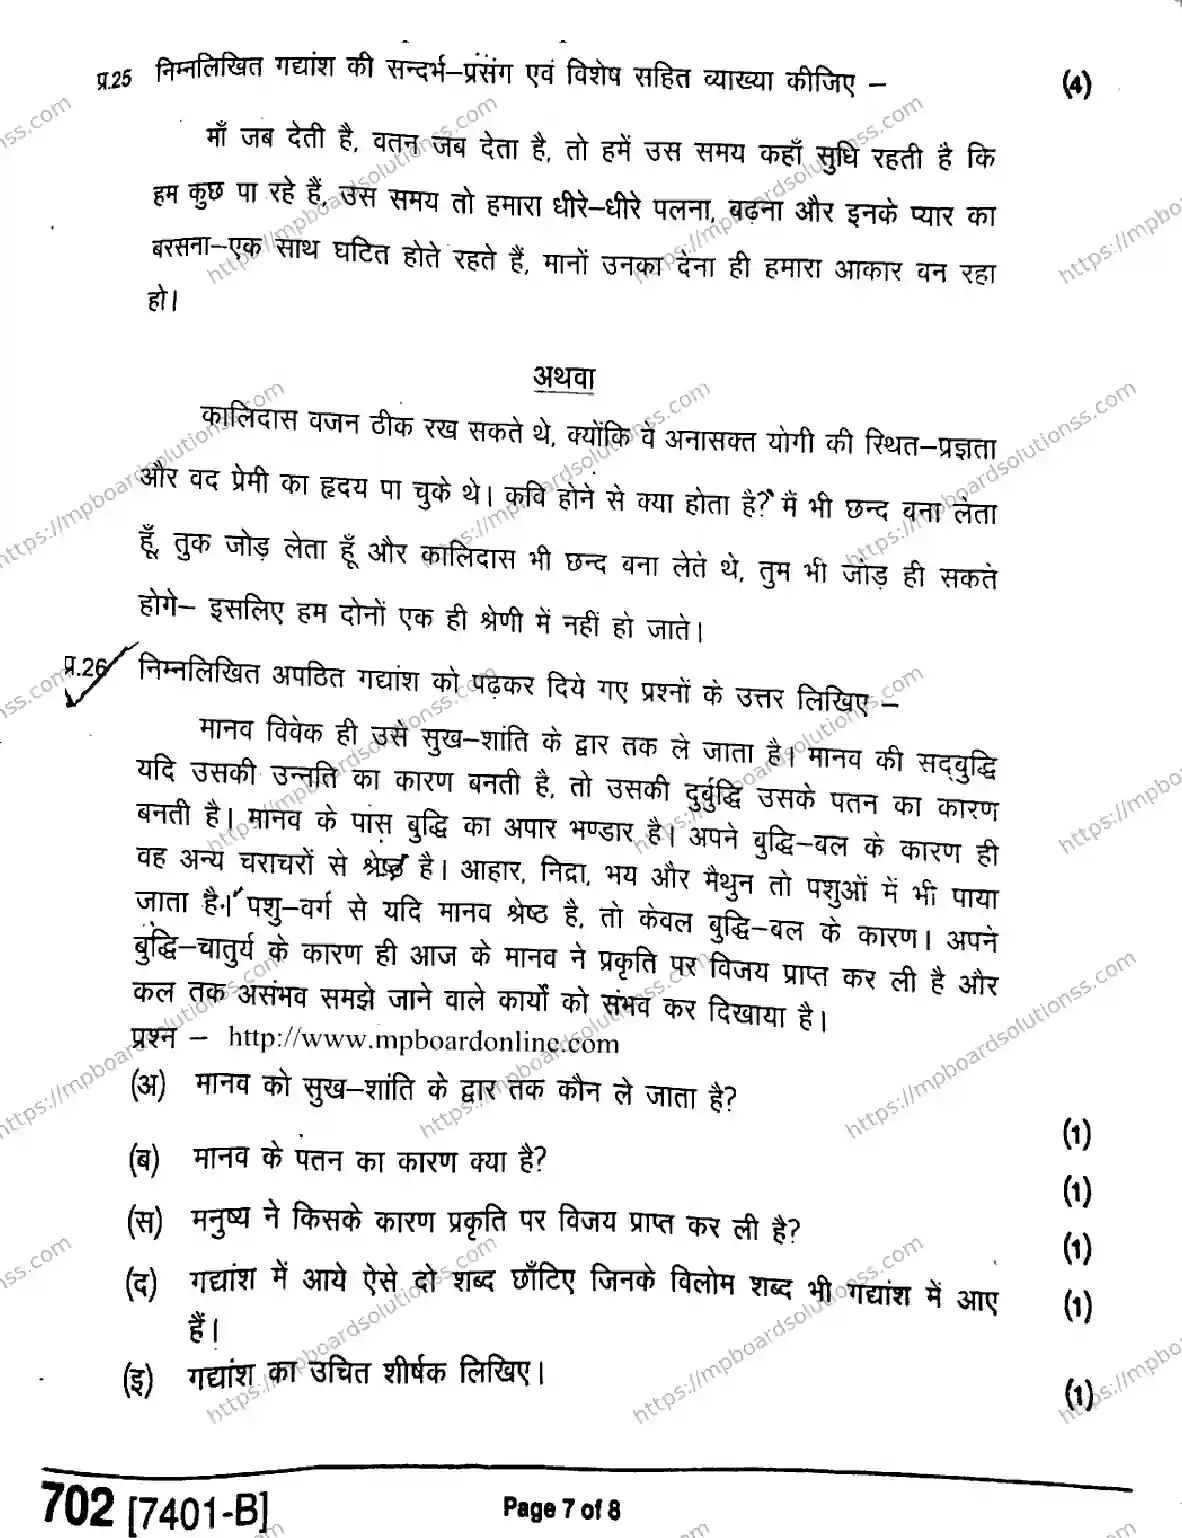 प्र.25 निम्नलिखित गद्यांश की सन्दर्भ–प्रसंग एवं विशेष सहित व्याख्या कीजिए – (4)
माँ जब देती है, वतन जब देता है, तो हमें उस समय कहाँ सुधि रहती है कि
हम कुछ पा रहे हैं, उस समय तो हमारा धीरे–धीरे पलना, बढ़ना और इनके प्यार का
बरसना–एक साथ घटित होते रहते हैं, मानों उनका देना ही हमारा आकार बन रहा
हो।
अथवा
कालिदास वजन ठीक रख सकते थे, क्योंकि वे अनासक्त योगी की स्थित–प्रज्ञता
और वद प्रेमी का हृदय पा चुके थे। कवि होने से क्या होता है? मैं भी छन्द बना लेता
हूँ, तुक जोड़ लेता हूँ और कालिदास भी छन्द बना लेते थे, तुम भी जोड़ ही सकते
होगे– इसलिए हम दोनों एक ही श्रेणी में नहीं हो जाते।
प्र.26 निम्नलिखित अपठित गद्यांश को पढ़कर दिये गए प्रश्नों के उत्तर लिखिए –
मानव विवेक ही उसे सुख–शांति के द्वार तक ले जाता है। मानव की सद्बुद्धि
यदि उसकी उन्नति का कारण बनती है, तो उसकी दुर्बुद्धि उसके पतन का कारण
बनती है। मानव के पास बुद्धि का अपार भण्डार है। अपने बुद्धि–बल के कारण ही
वह अन्य चराचरों से श्रेष्ठ है। आहार, निद्रा, भय और मैथुन तो पशुओं में भी पाया
जाता है। पशु–वर्ग से यदि मानव श्रेष्ठ है, तो केवल बुद्धि–बल के कारण। अपने
बुद्धि–चातुर्य के कारण ही आज के मानव ने प्रकृति पर विजय प्राप्त कर ली है और
कल तक असंभव समझे जाने वाले कार्यों को संभव कर दिखाया है।
प्रश्न – http://www.mpboardonline.com
(अ) मानव को सुख–शांति के द्वार तक कौन ले जाता है? (1)
(ब) मानव के पतन का कारण क्या है? (1)
(स) मनुष्य ने किसके कारण प्रकृति पर विजय प्राप्त कर ली है? (1)
(द) गद्यांश में आये ऐसे दो शब्द छाँटिए जिनके विलोम शब्द भी गद्यांश में आए (1)
हैं।
(इ) गद्यांश का उचित शीर्षक लिखिए। (1)
702 [7401-B] Page 7 of 8
https://mpboardsolutionss.com